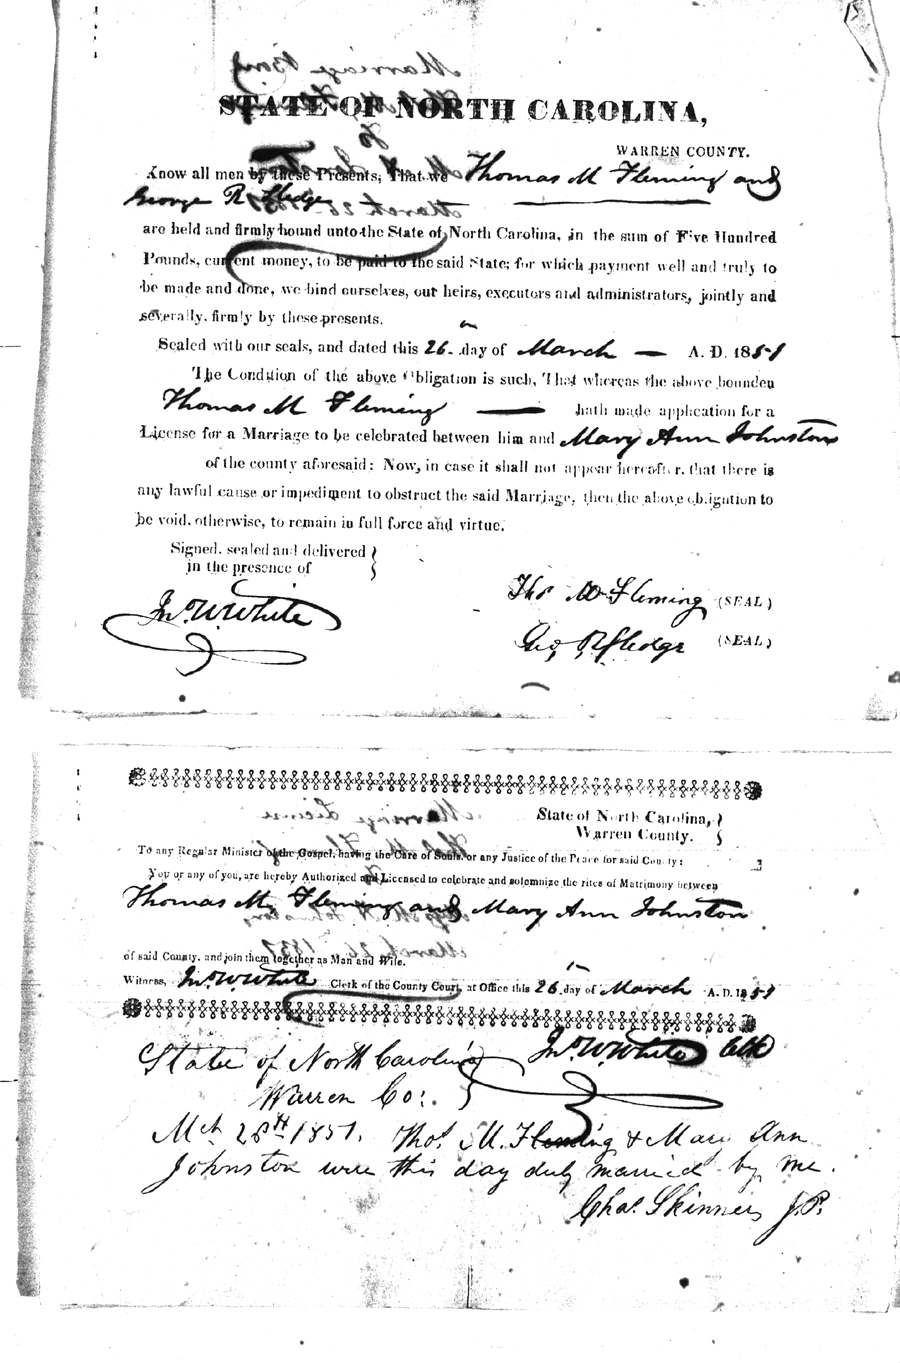 STATE OF NORTH CAROLINA,
WARREN COUNTY.
Know all men by these Presents, That we Thomas M Fleming and
George R Sledge
are held and firmly bound unto the State of North Carolina, in the sum of Five Hundred
Pounds, current money, to be paid to the said State; for which payment well and truly to
be made and done, we bind ourselves, our heirs, executors and administrators, jointly and
severally, firmly by these presents.
Sealed with our seals, and dated this 26 day of March — A. D. 1851
The Condition of the above Obligation is such, That whereas the above bounden
Thomas M Fleming — hath made application for a
License for a Marriage to be celebrated between him and Mary Ann Johnston
of the county aforesaid: Now, in case it shall not appear hereafter, that there is
any lawful cause or impediment to obstruct the said Marriage, then the above obligation to
be void, otherwise, to remain in full force and virtue.
Signed, sealed and delivered
in the presence of
Jno. W. White
Tho's M Fleming (SEAL)
Geo. R Sledge (SEAL)
State of North Carolina,
Warren County.
To any Regular Minister of the Gospel, having the Care of Souls, or any Justice of the Peace for said County:
You or any of you, are hereby Authorized and Licensed to celebrate and solemnize the rites of Matrimony between
Thomas M. Fleming and Mary Ann Johnston
of said County, and join them together as Man and Wife.
Witness, Jno W White Clerk of the County Court, at Office this 26 day of March A. D. 1851
Jno. W. White Clk
State of North Carolina
Warren Co:
Mch 28th 1851. Thos. M. Fleming & Mary Ann
Johnston were this day duly married by me.
Chas. Skinner J.P.